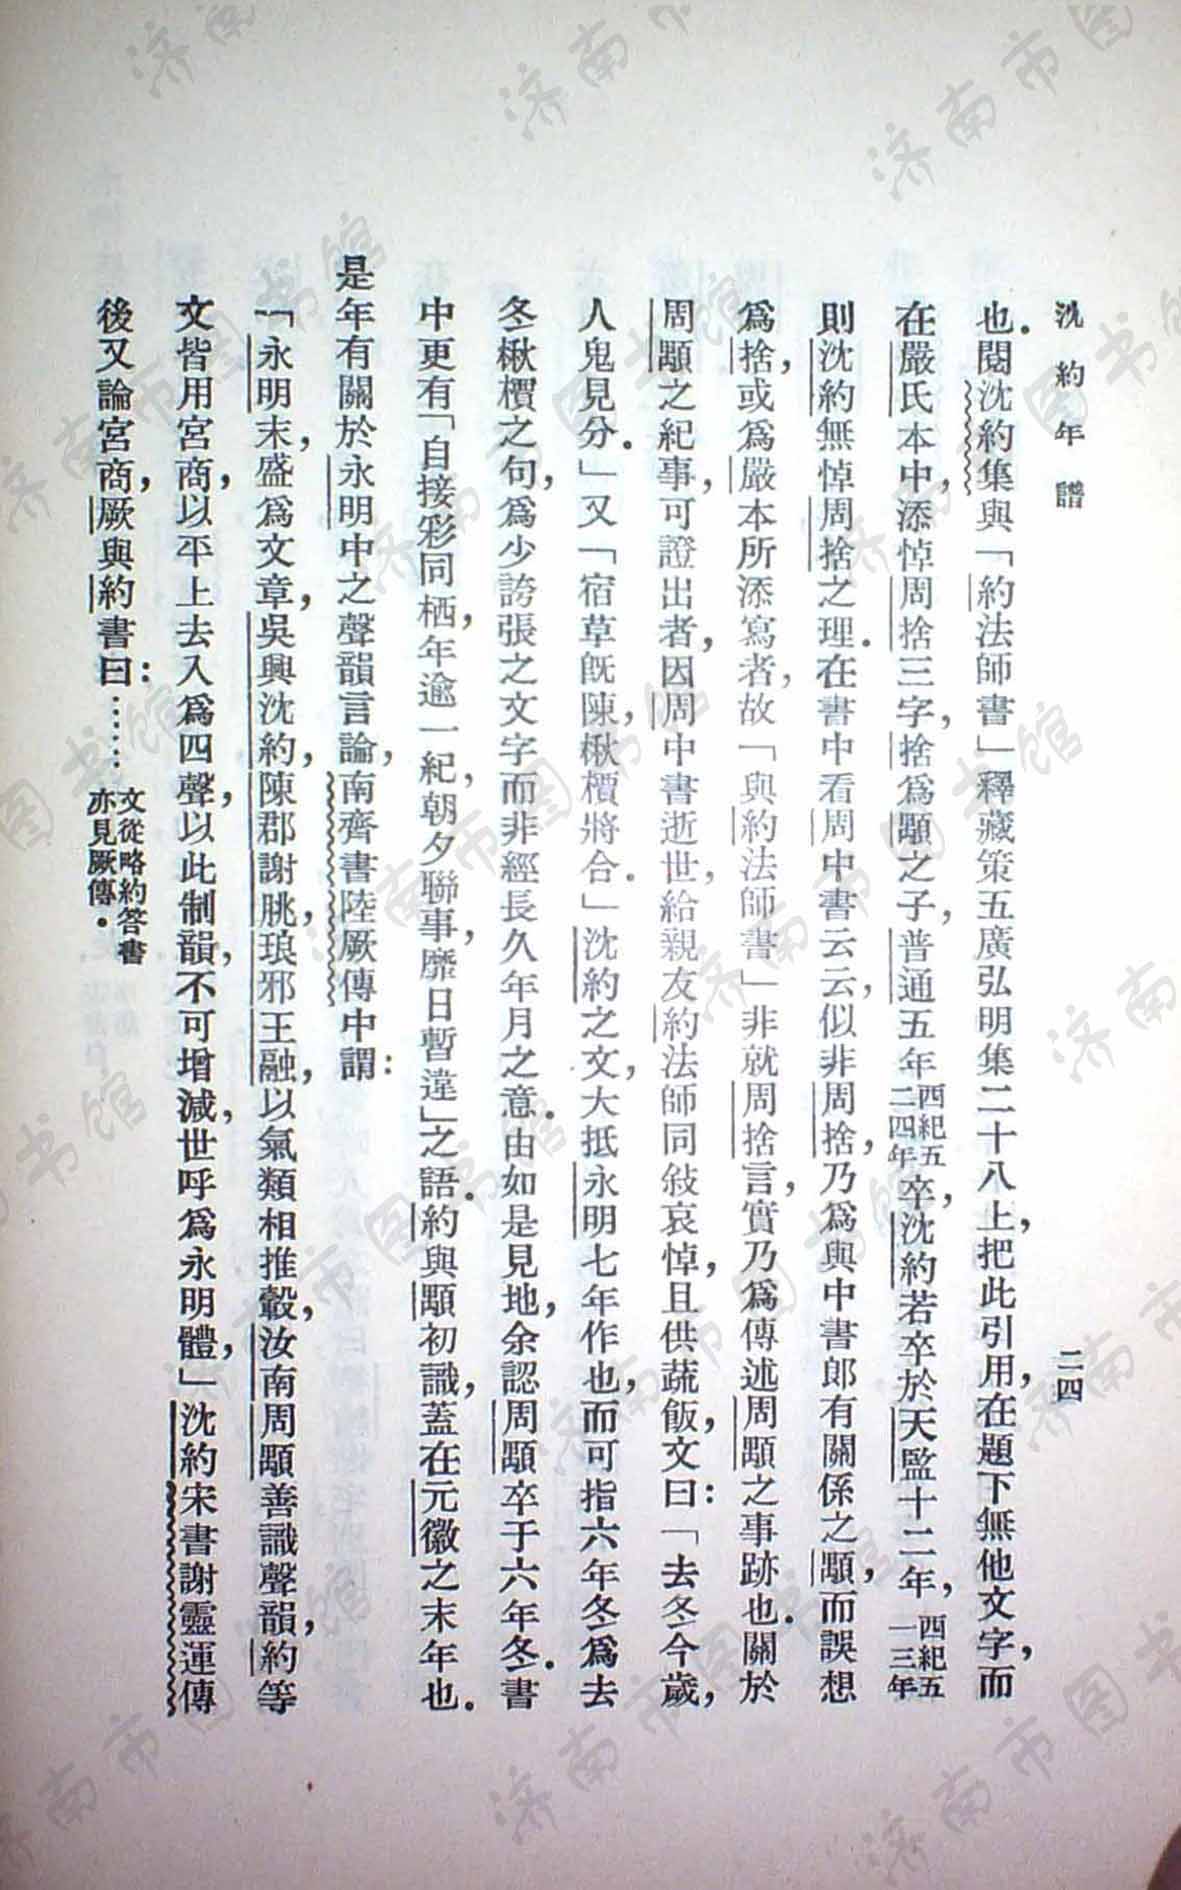 沈約年譜
二四
也．閱沈約集與「約法師書」釋藏策五廣弘明集二十八上，把此引用，在題下無他文字，而
在嚴氏本中，添悼周捨三字，捨爲顒之子，普通五年西紀五二四年卒，沈約若卒於天監十二年，西紀五一三年
則沈約無悼周捨之理．在書中看周中書云云，似非周捨，乃爲與中書郎有關係之顒，而誤想
爲捨，或爲嚴本所添寫者，故「與約法師書」非就周捨言，實乃爲傳述周顒之事跡也．關於
周顒之紀事，可證出者，因周中書逝世，給親友約法師同敍哀悼，且供蔬飯，文曰：「去冬今歲，
人鬼見分．」又「宿草旣陳，楸檟將合．」沈約之文，大抵永明七年作也，而可指六年冬爲去
冬，楸檟之句，爲少誇張之文字，而非經長久年月之意．由如是見地，余認周顒卒于六年冬．書
中更有「自接彩同栖，年逾一紀，朝夕聯事，靡日暫違」之語．約與顒初識，蓋在元徽之末年也．
是年有關於永明中之聲韻言論，南齊書陸厥傳中謂：
「永明末，盛爲文章，吳興沈約，陳郡謝朓，琅邪王融，以氣類相推轂，汝南周顒善識聲韻，約等
文皆用宮商，以平上去入爲四聲，以此制韻，不可增減，世呼爲永明體，」沈約宋書謝靈運傳
後又論宮商，厥與約書曰：……文從略約答書亦見厥傳．
济南市图书馆